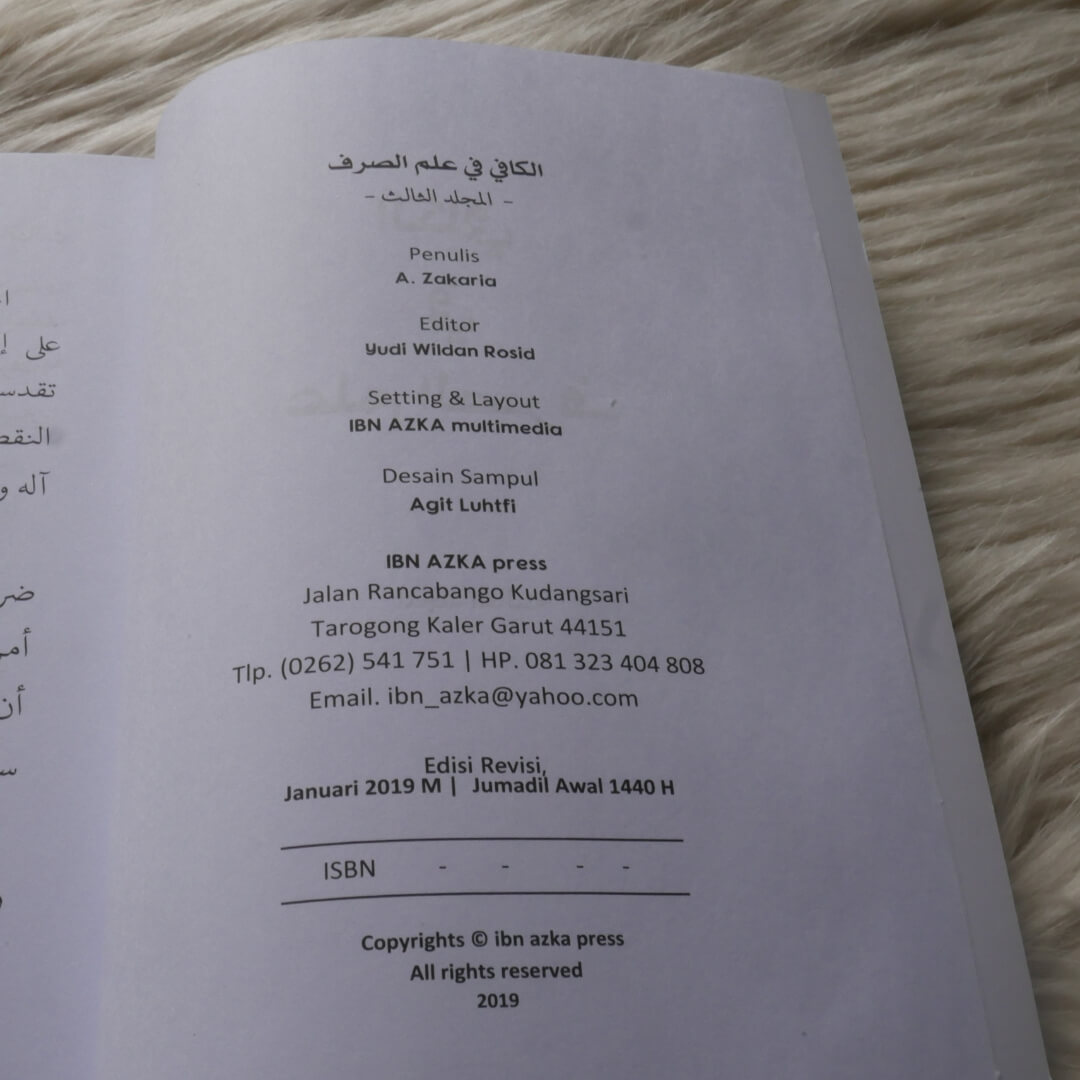 الكافي في علم الصرف
- المجلد الثالث -
Penulis
A. Zakaria
Editor
Yudi Wildan Rosid
Setting & Layout
IBN AZKA multimedia
Desain Sampul
Agit Luhtfi
IBN AZKA press
Jalan Rancabango Kudangsari
Tarogong Kaler Garut 44151
Tlp. (0262) 541 751 | HP. 081 323 404 808
Email. ibn_azka@yahoo.com
Edisi Revisi,
Januari 2019 M | Jumadil Awal 1440 H
ISBN - - - -
Copyrights © ibn azka press
All rights reserved
2019
على إ
تقدس
آله و
أن